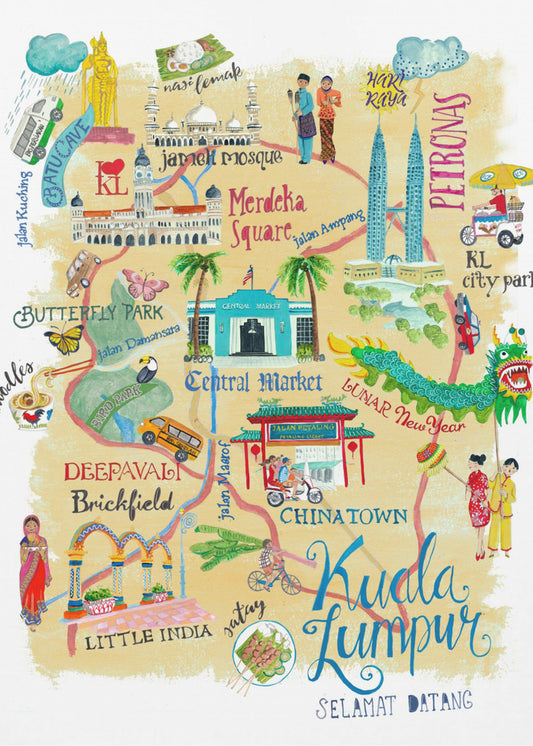 nasi lemak
HARI
RAYA
BATU CAVE
jamek mosque
PETRONAS
I
KL
Jalan Kuching
Merdeka
Square
Jalan Ampang
KL
city park
BUTTERFLY PARK
CENTRAL MARKET
Jalan Damansara
noodles
Central Market
LUNAR New Year
BIRD PARK
JALAN PETALING
PETALING STREET
DEEPAVALI
Brickfield
Jalan Maarof
CHINATOWN
Kuala
Lumpur
LITTLE INDIA
satay
SELAMAT DATANG